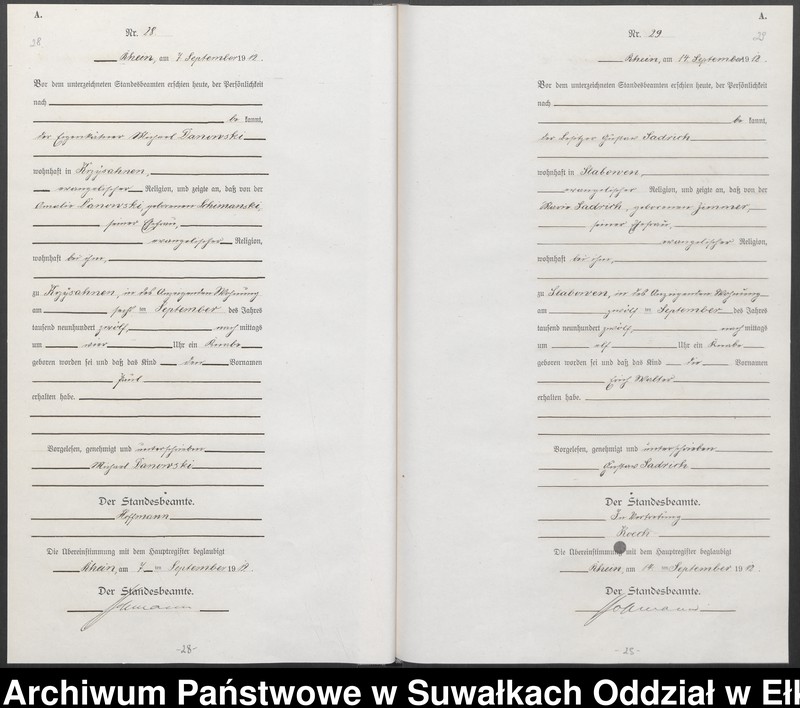 A.
28
Nr. 28
Rhein, am 7 September 1912.
Vor dem unterzeichneten Standesbeamten erschien heute, der Persönlichkeit
nach
be kannt,
der Eigenkätner Michael Danowski
wohnhaft in Krzysahnen,
evangelischer Religion, und zeigte an, daß von der
Amalie Danowski, geborenen Schimanski,
seiner Ehefrau,
evangelischer Religion,
wohnhaft bei ihm,
zu Krzysahnen, in des Anzeigenden Wohnung
am sechs ten September des Jahres
tausend neunhundert zwölf, nach mittags
um vier Uhr ein Knabe
geboren worden sei und daß das Kind den Vornamen
Paul
erhalten habe.
Vorgelesen, genehmigt und unterschrieben
Michael Danowski
Der Standesbeamte.
Hoffmann
Die Übereinstimmung mit dem Hauptregister beglaubigt
Rhein, am 7 ten September 1912.
Der Standesbeamte.
-28-
A.
29
Nr. 29
Rhein, am 14 September 1912.
Vor dem unterzeichneten Standesbeamten erschien heute, der Persönlichkeit
nach
be kannt,
der Besitzer Gustav Sadrich
wohnhaft in Slabowen,
evangelischer Religion, und zeigte an, daß von der
Marie Sadrich, geborenen Zimmer,
seiner Ehefrau,
evangelischer Religion,
wohnhaft bei ihm,
zu Slabowen, in des Anzeigenden Wohnung
am zwölf ten September des Jahres
tausend neunhundert zwölf, nach mittags
um elf Uhr ein Knabe
geboren worden sei und daß das Kind die Vornamen
Erich Walter
erhalten habe.
Vorgelesen, genehmigt und unterschrieben
Gustav Sadrich
Der Standesbeamte.
In Vertretung
Koech
Die Übereinstimmung mit dem Hauptregister beglaubigt
Rhein, am 14 ten September 1912.
Der Standesbeamte.
Archiwum Państwowe w Suwałkach Oddział w Ełk